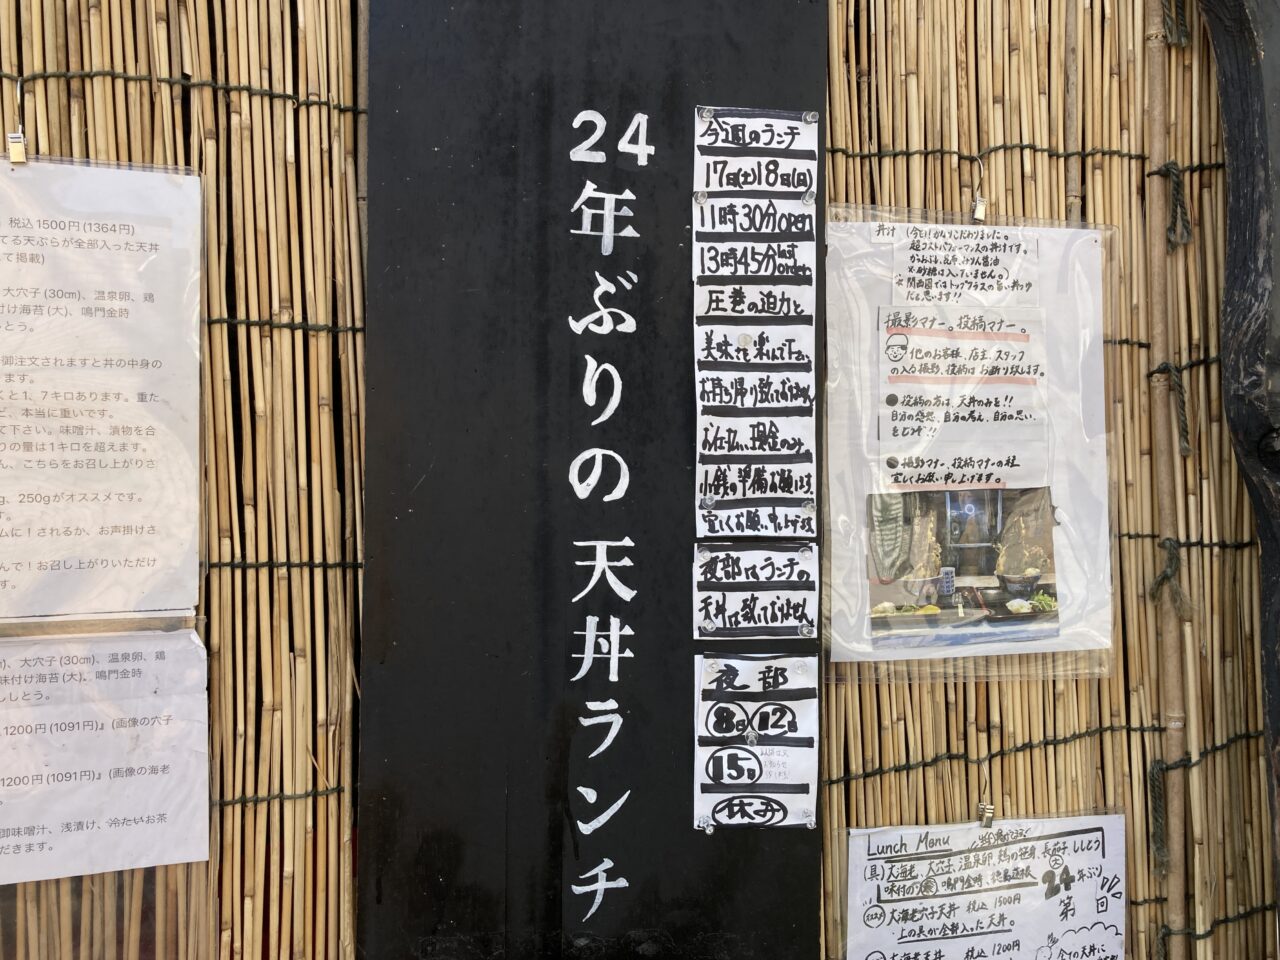 税込1500円(1364円)
てる天ぷらが全部入った天丼
て掲載)
大穴子(30㎝)、温泉卵、鶏
付け海苔(大)、鳴門金時
しとう。
御注文されますと丼の中身の
ます。
くと1、7キロあります。重た
ど、本当に重いです。
て下さい。味噌汁、漬物を合
りの量は1キロを超えます。
ん、こちらをお召し上がりさ
g、250gがオススメです。
す。
ムに!されるか、お声掛けさ
んで!お召し上がりいただけ
す。
)、大穴子(30㎝)、温泉卵、鶏
味付け海苔(大)、鳴門金時
ししとう。
1200円(1091円)』(画像の穴子
1200円(1091円)』(画像の海老
御味噌汁、浅漬け、冷たいお茶
だきます。
24年ぶりの天丼ランチ
今週のランチ
17日(土)18日(日)
11時30分open
13時45分last order
圧巻の迫力と
美味さを楽しんで下さい
お持ち帰り致しておりません
お仕払い現金のみ
小銭の準備お願います。
宜しくお願い申し上げます
夜部はランチの
天丼は致しておりません
夜部
8日 12日
15日
休み
丼汁 (今も!かなりこだわりました。
超コストパフォーマンスの丼汁です。
かつおぶし、昆布、みりん醤油
※砂糖は入っていません。)
※関西圏ではトップクラスの旨い丼つゆ
だと思います!!
撮影マナー。投稿マナー。
他のお客様、店主、スタッフ
の入る撮影、投稿はお断り致します。
●投稿の方は、天丼のみを!!
自分の感想、自分の考え、自分の思い、
●撮影マナー、投稿マナーの程
宜しくお願い申し上げます。
Lunch Menu
(具)大海老、大穴子、温泉卵、鶏の笹身、長茄子、ししとう
味付のり(大)、鳴門金時、徳島蓮根
大海老穴子天丼 税込1500円
上の具が全部入った天丼。
大海老天丼 税込1200円
24年ぶり
第 回
全ての天丼に